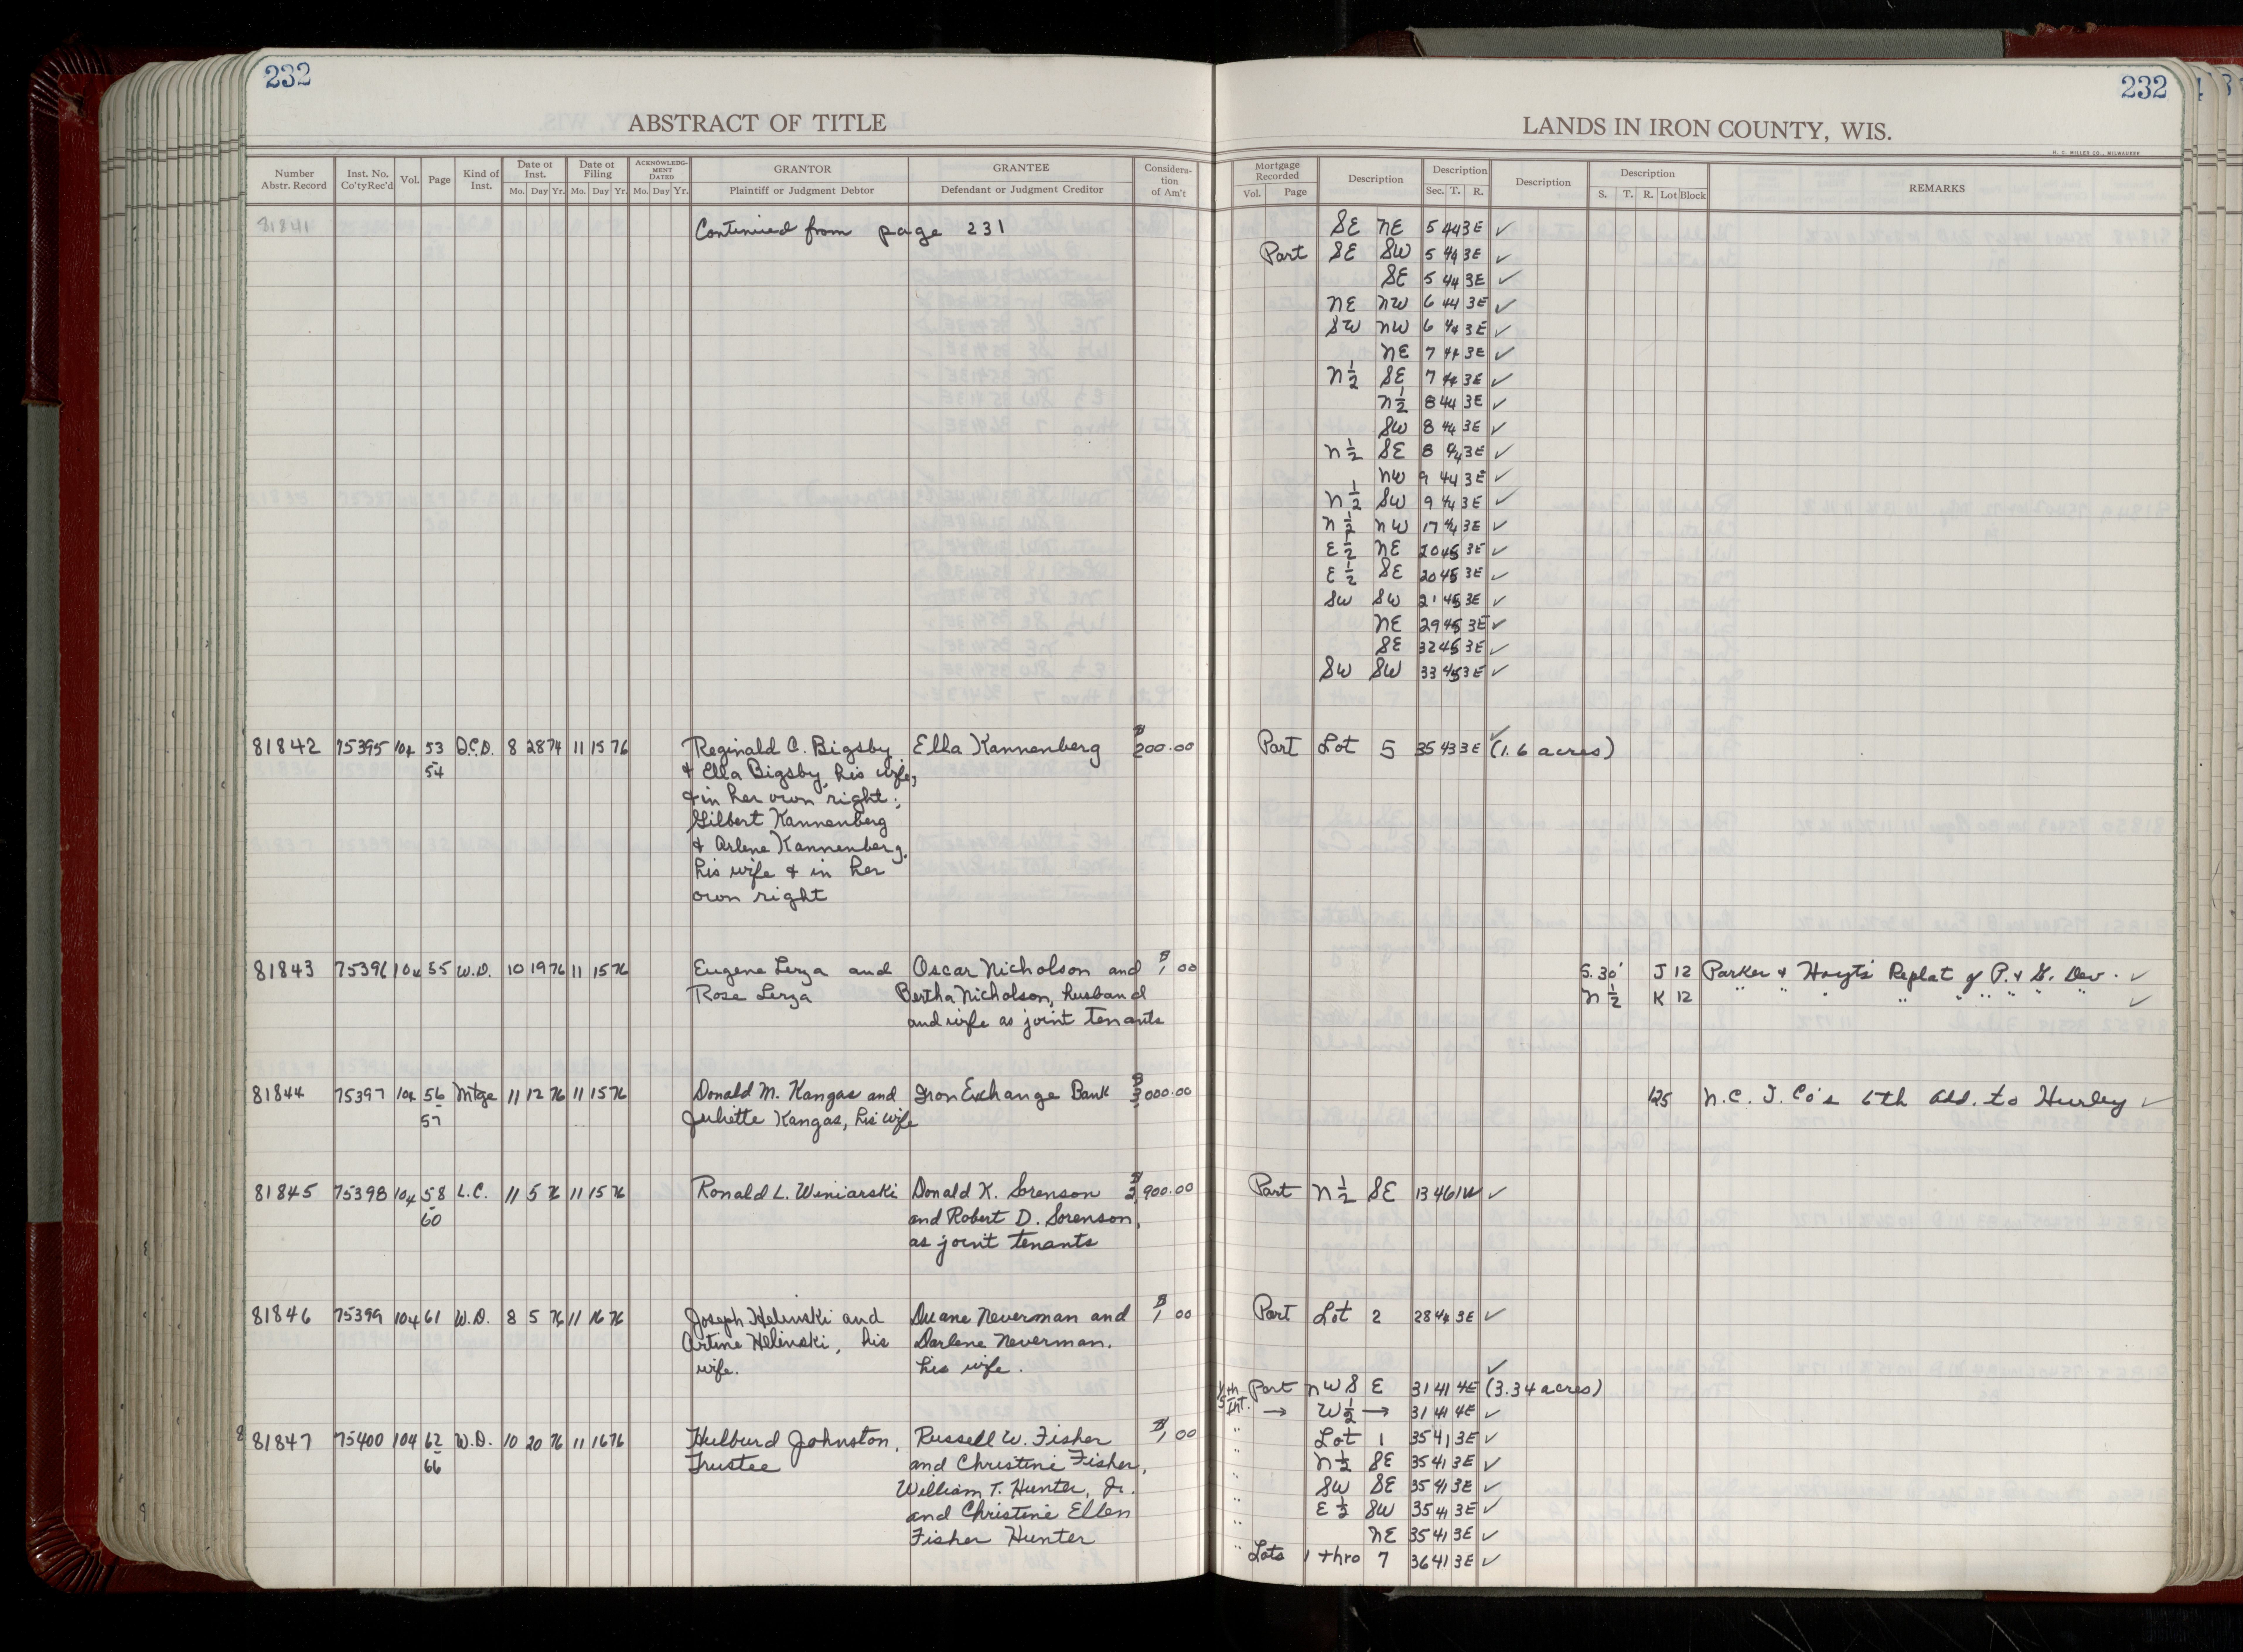 232
ABSTRACT OF TITLE
Number Abstr. Record | Inst. No. Co'ty Rec'd | Vol. | Page | Kind of Inst. | Date of Inst. Mo. Day Yr. | Date of Filing Mo. Day Yr. | ACKNOWLEDGMENT DATED Mo. Day Yr. | GRANTOR Plaintiff or Judgment Debtor | GRANTEE Defendant or Judgment Creditor | Consideration of Am't
81841 Continued from page 231
81842 75395 104 53 Q.C.D. 8 28 74 11 15 76 Reginald C. Bigsby Ella Kannenberg $200.00
54 & Ella Bigsby, his wife,
& in her own right;
Gilbert Kannenberg
& Arlene Kannenberg,
his wife & in her
own right
81843 75396 104 55 W.D. 10 19 76 11 15 76 Eugene Lerza and Oscar Nicholson and $1.00
Rose Lerza Bertha Nicholson, husband
and wife as joint tenants
81844 75397 104 56 Mtge 11 12 76 11 15 76 Donald M. Kangas and Iron Exchange Bank $3000.00
57 Juliette Kangas, his wife
81845 75398 104 58 L.C. 11 5 76 11 15 76 Ronald L. Winiarski Donald K. Sorenson 900.00
60 and Robert D. Sorenson,
as joint tenants
81846 75399 104 61 W.D. 8 5 76 11 16 76 Joseph Helinski and Duane Neverman and $1.00
Artine Helinski, his Darlene Neverman,
wife. his wife.
81847 75400 104 62 W.D. 10 20 76 11 16 76 Hulburd Johnston, Russell W. Fisher $1.00
66 Trustee and Christine Fisher,
William T. Hunter, Jr.
and Christine Ellen
Fisher Hunter
232
LANDS IN IRON COUNTY, WIS.
H. C. MILLER CO., MILWAUKEE
Mortgage Recorded Vol. Page | Description | Description Sec. T. R. | Description | Description S. T. R. Lot Block | REMARKS
SE NE 5 44 3E ✓
Part SE SW 5 44 3E ✓
SE 5 44 3E ✓
NE NW 6 44 3E ✓
SW NW 6 44 3E ✓
NE 7 44 3E ✓
N½ SE 7 44 3E ✓
N½ 8 44 3E ✓
SW 8 44 3E ✓
N½ SE 8 44 3E ✓
NW 9 44 3E ✓
N½ SW 9 44 3E ✓
N½ NW 17 44 3E ✓
E½ NE 20 45 3E ✓
E½ SE 20 45 3E ✓
SW SW 21 45 3E ✓
NE 29 45 3E ✓
SE 32 45 3E ✓
SW SW 33 45 3E ✓
Part Lot 5 35 43 3E ✓ (1.6 acres)
S. 30' J 12 Parker & Hoyt's Replat of P. & G. Dev. ✓
N½ K 12 " " " " " " " " ✓
125 N.C. I. Co's 6th Add. to Hurley ✓
Part N½ SE 13 46 1W ✓
Part Lot 2 28 44 3E ✓
1/5th Int. Part NW SE 31 41 4E ✓ (3.34 acres)
→ W½ → 31 41 4E ✓
" Lot 1 35 41 3E ✓
" N½ SE 35 41 3E ✓
" SW SE 35 41 3E ✓
" E½ SW 35 41 3E ✓
" NE 35 41 3E ✓
" Lots 1 thro 7 36 41 3E ✓